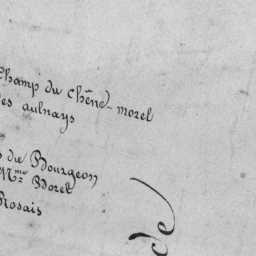 Champ du chêne-morel
les aulnays
du Bourgeon
Mme Borel
Rosais
de